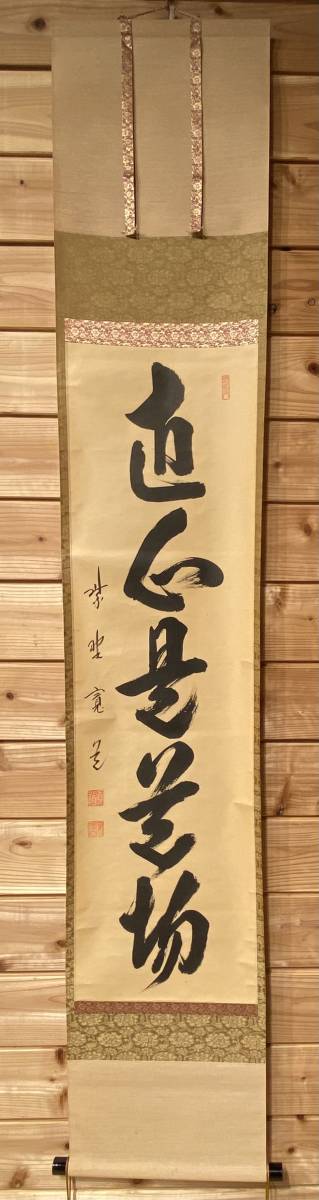 直心是道場
紫野寛道